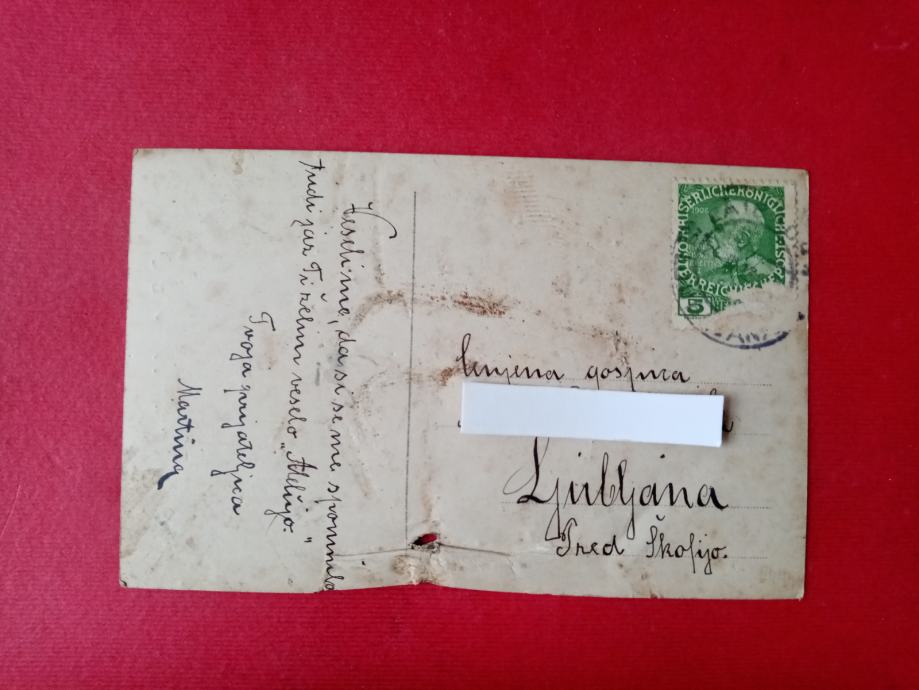 Veseli me, da si se me spomnila
Tudi jaz Ti želim veselo „Alelujo.“
Tvoja prijateljica
Martina
Cenjena gospica
Ljubljana
Pred Škofijo.
KAISERLICHE KÖNIGLICHE
ÖSTERREICHISCHE POST
1908
5